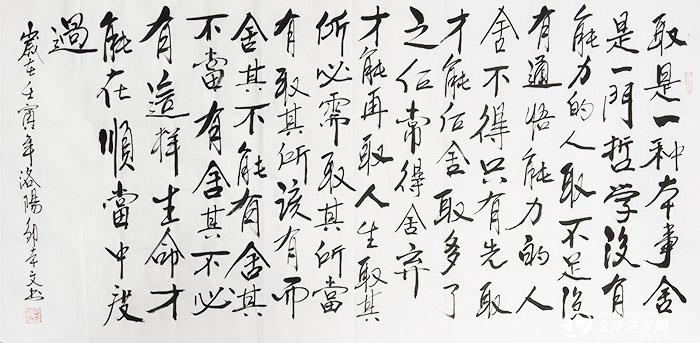 取是一种本事舍
是一門哲学没有
能力的人取不足
有通悟能力的人
舍不得只有先取
才能后舍取多了
之后常得舍弃
才能再取人生取其
所必需取其所當
有取其所该有而
舍其不能有舍其
不當有舍其不必
有這樣生命才
能在順當中度
過
歲在壬寅年洛陽
文化艺术网